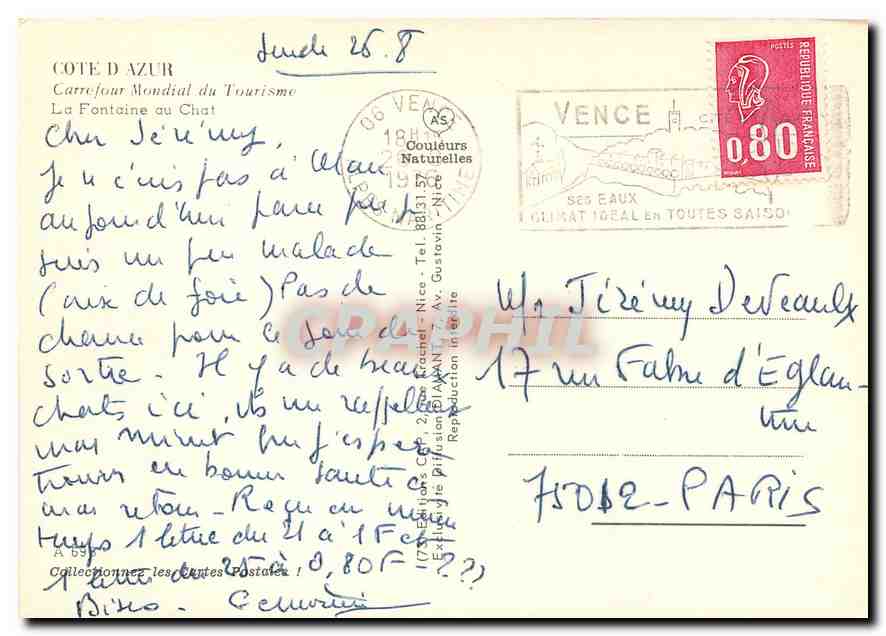 26.8
COTE D AZUR
Carrefour Mondial du Tourisme
La Fontaine au Chat
Cher Jérémy,
Je n'
pas à
aujourd'hui parce que je
suis un peu malade
(crise de foie) Pas de
chance pour ce jour de
sortie - Il y a de beaux
chats ici, ils me rappellent
mon minet que j'espère
trouver en bonne santé à
mon retour - Reçu en même
temps 1 lettre du 21 à 1F et
1 lettre du 25 à 0,80F = ???
Bises -
A 69
Collectionnez les Cartes Postales !
06 VENCE
18H
ALPES MARITIMES
AS
Couleurs
Naturelles
Nice - Tel. 88.31.57
Exclusivité Diffusion DIAMANT, 7, Av. Gustavin - Nice
Reproduction interdite
VENCE
SES EAUX
CLIMAT IDEAL EN TOUTES SAISO
POSTES
REPUBLIQUE FRANÇAISE
0,80
CPAPHIL
Jérémy Deveaulx
17 rue Fabre d'Eglan-
tine
75012 - PARIS